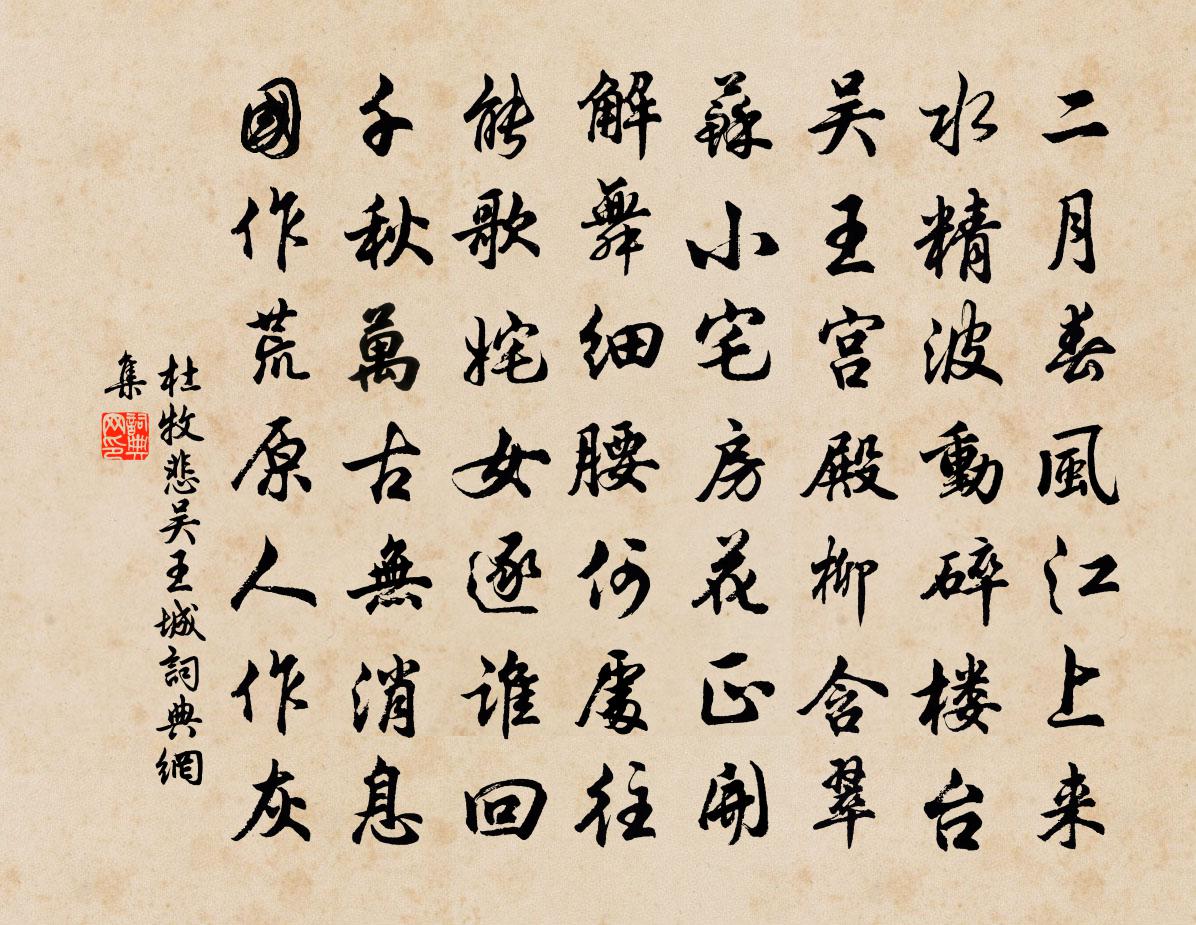 二月春風江上来
水精波動碎楼台
吴王宫殿柳含翠
蘇小宅房花正開
解舞細腰何處往
能歌姹女逐谁回
千秋萬古無消息
國作荒原人作灰
杜牧悲吴王城詞典網
集
詞典网印